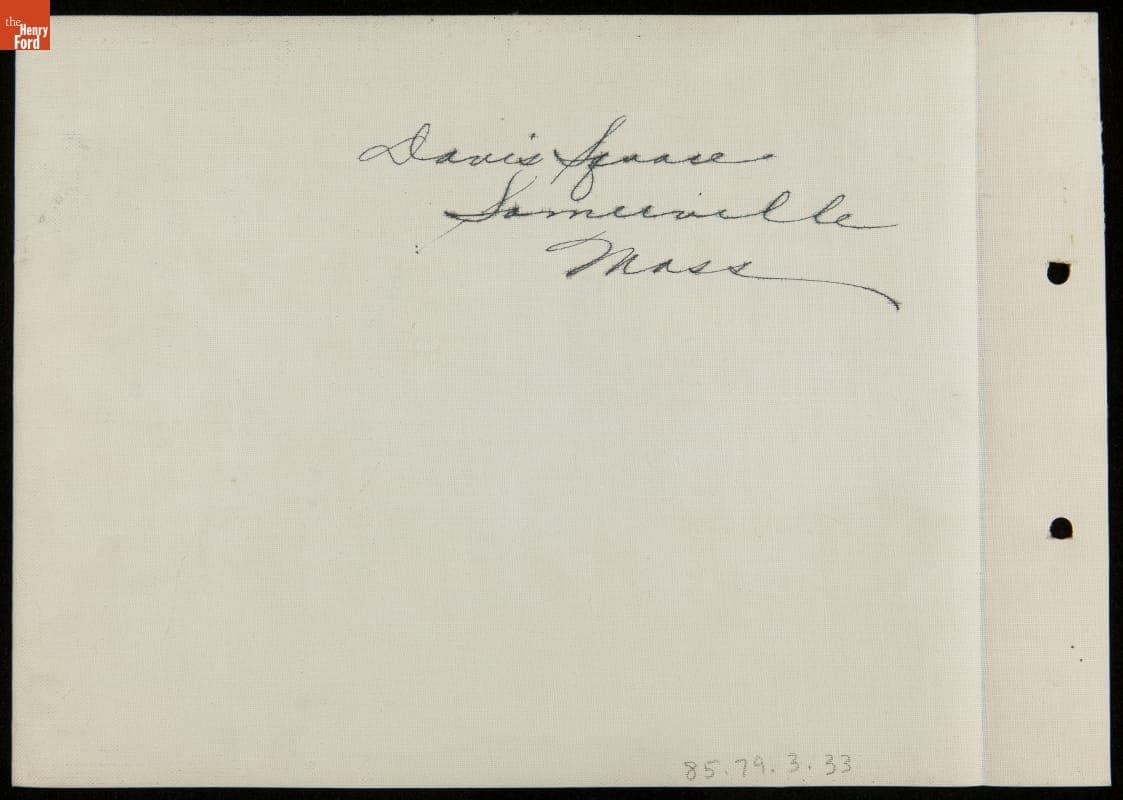 the
Henry
Ford
Davis Square
Somerville
Mass
85.79.3.33